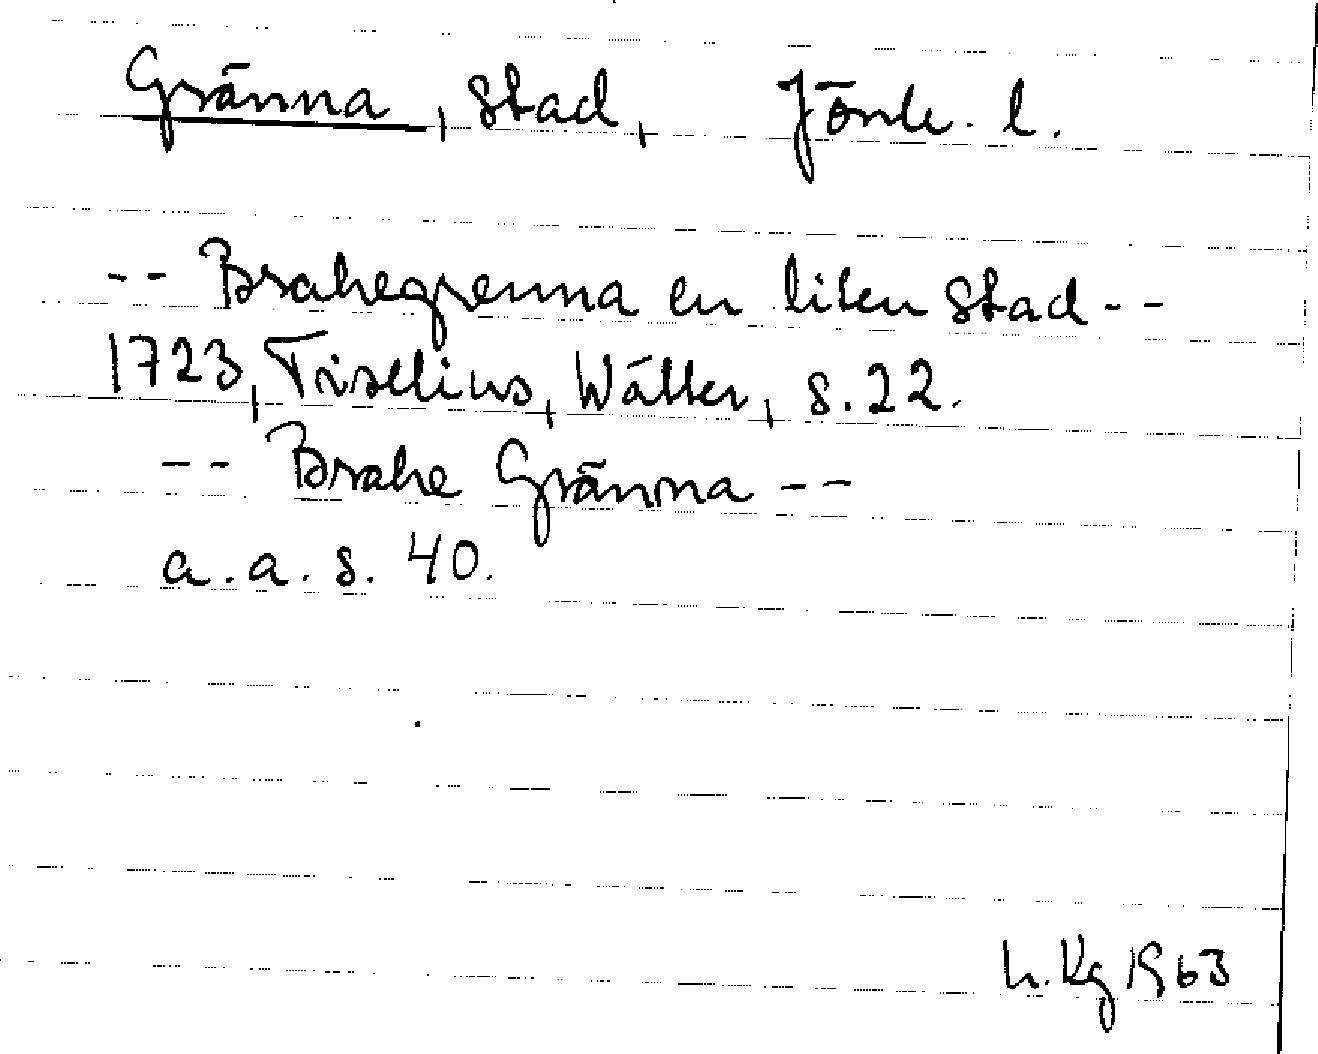 Gränna, stad, Jönk. l.
-- Brahegrenna en liten stad --
1723, Tiselius, Wätter, s. 22.
-- Brahe Gränna --
a.a. s. 40.
h. Kg 1963